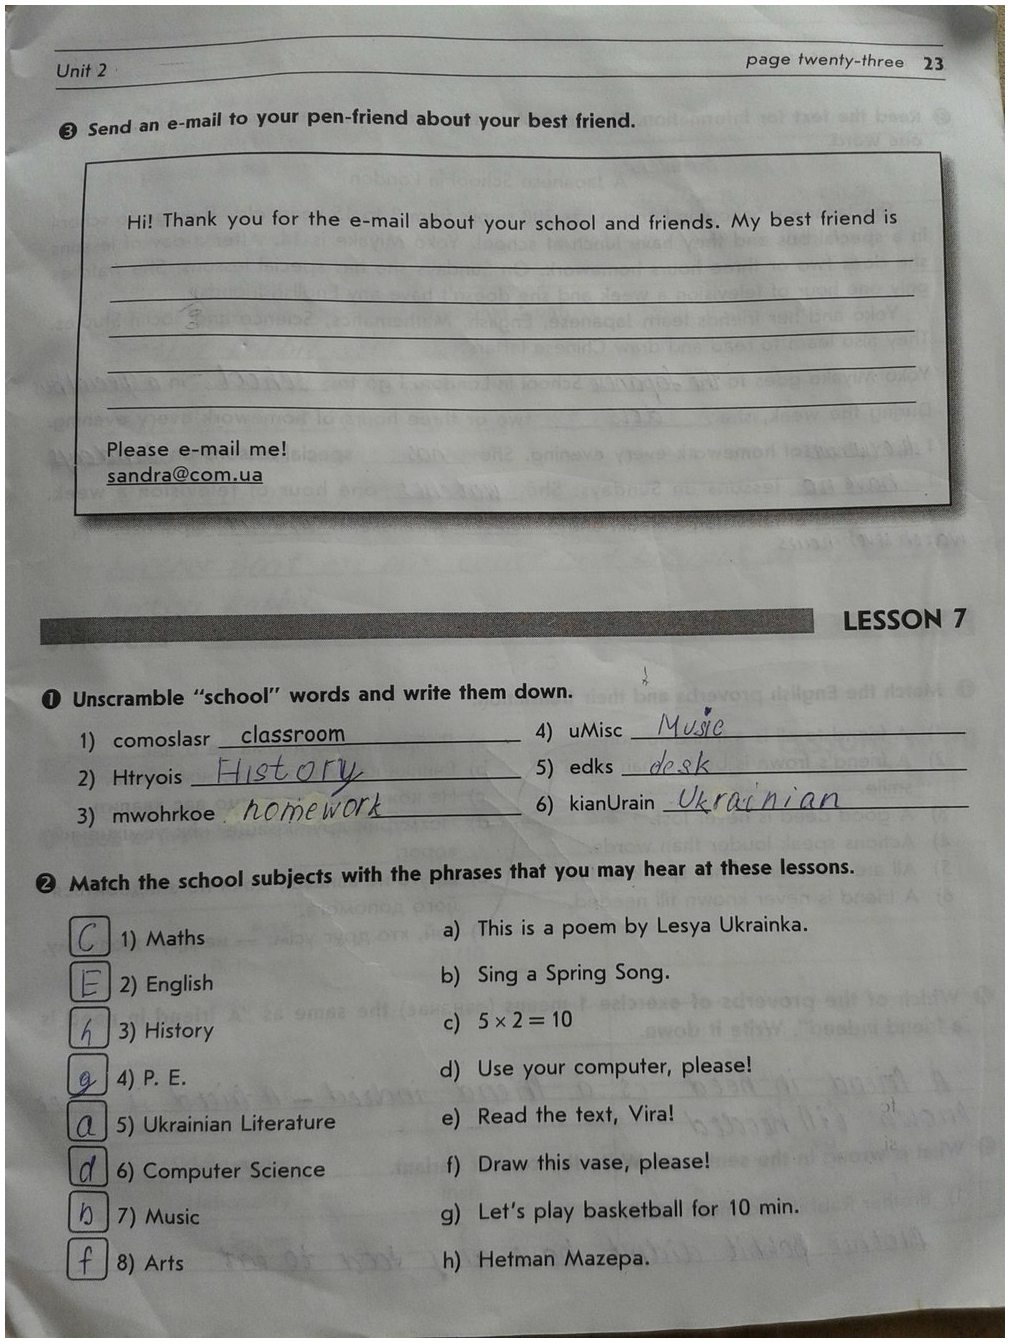 Unit 2
page twenty-three 23
3 Send an e-mail to your pen-friend about your best friend.
Hi! Thank you for the e-mail about your school and friends. My best friend is
Please e-mail me!
sandra@com.ua
LESSON 7
1 Unscramble “school” words and write them down.
1) comoslasr classroom
2) Htryois History
3) mwohrkoe homework
4) uMisc Music
5) edks desk
6) kianUrain Ukrainian
2 Match the school subjects with the phrases that you may hear at these lessons.
C 1) Maths
E 2) English
h 3) History
g 4) P. E.
a 5) Ukrainian Literature
d 6) Computer Science
b 7) Music
f 8) Arts
a) This is a poem by Lesya Ukrainka.
b) Sing a Spring Song.
c) 5 × 2 = 10
d) Use your computer, please!
e) Read the text, Vira!
f) Draw this vase, please!
g) Let's play basketball for 10 min.
h) Hetman Mazepa.